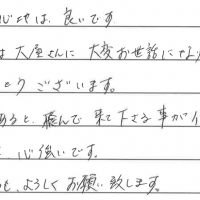 心地は、良いです
は大屋さんに大変お世話になり
とうございます。
あると、飛んで来て下さる事が
心強いです。
も、よろしくお願い致します。